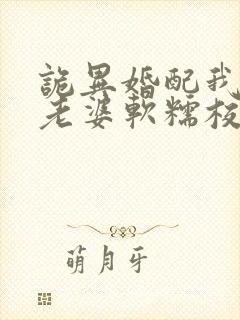 詭異婚配我
老婆軟糯
萌月牙